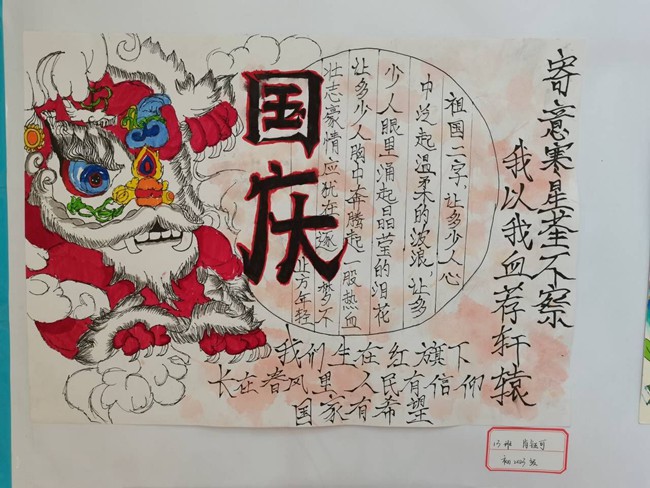 寄意寒星荃不察
我以我血荐轩辕
国庆
祖国二字,让多少人心
中泛起温柔的波浪,让多
少人眼里涌起晶莹的泪花
让多少人胸中奔腾起一股热血
壮志豪情应犹在逐梦不
年轻
我们生在红旗下
长在春风里 人民有信仰
国家有希望
15班
初2023级